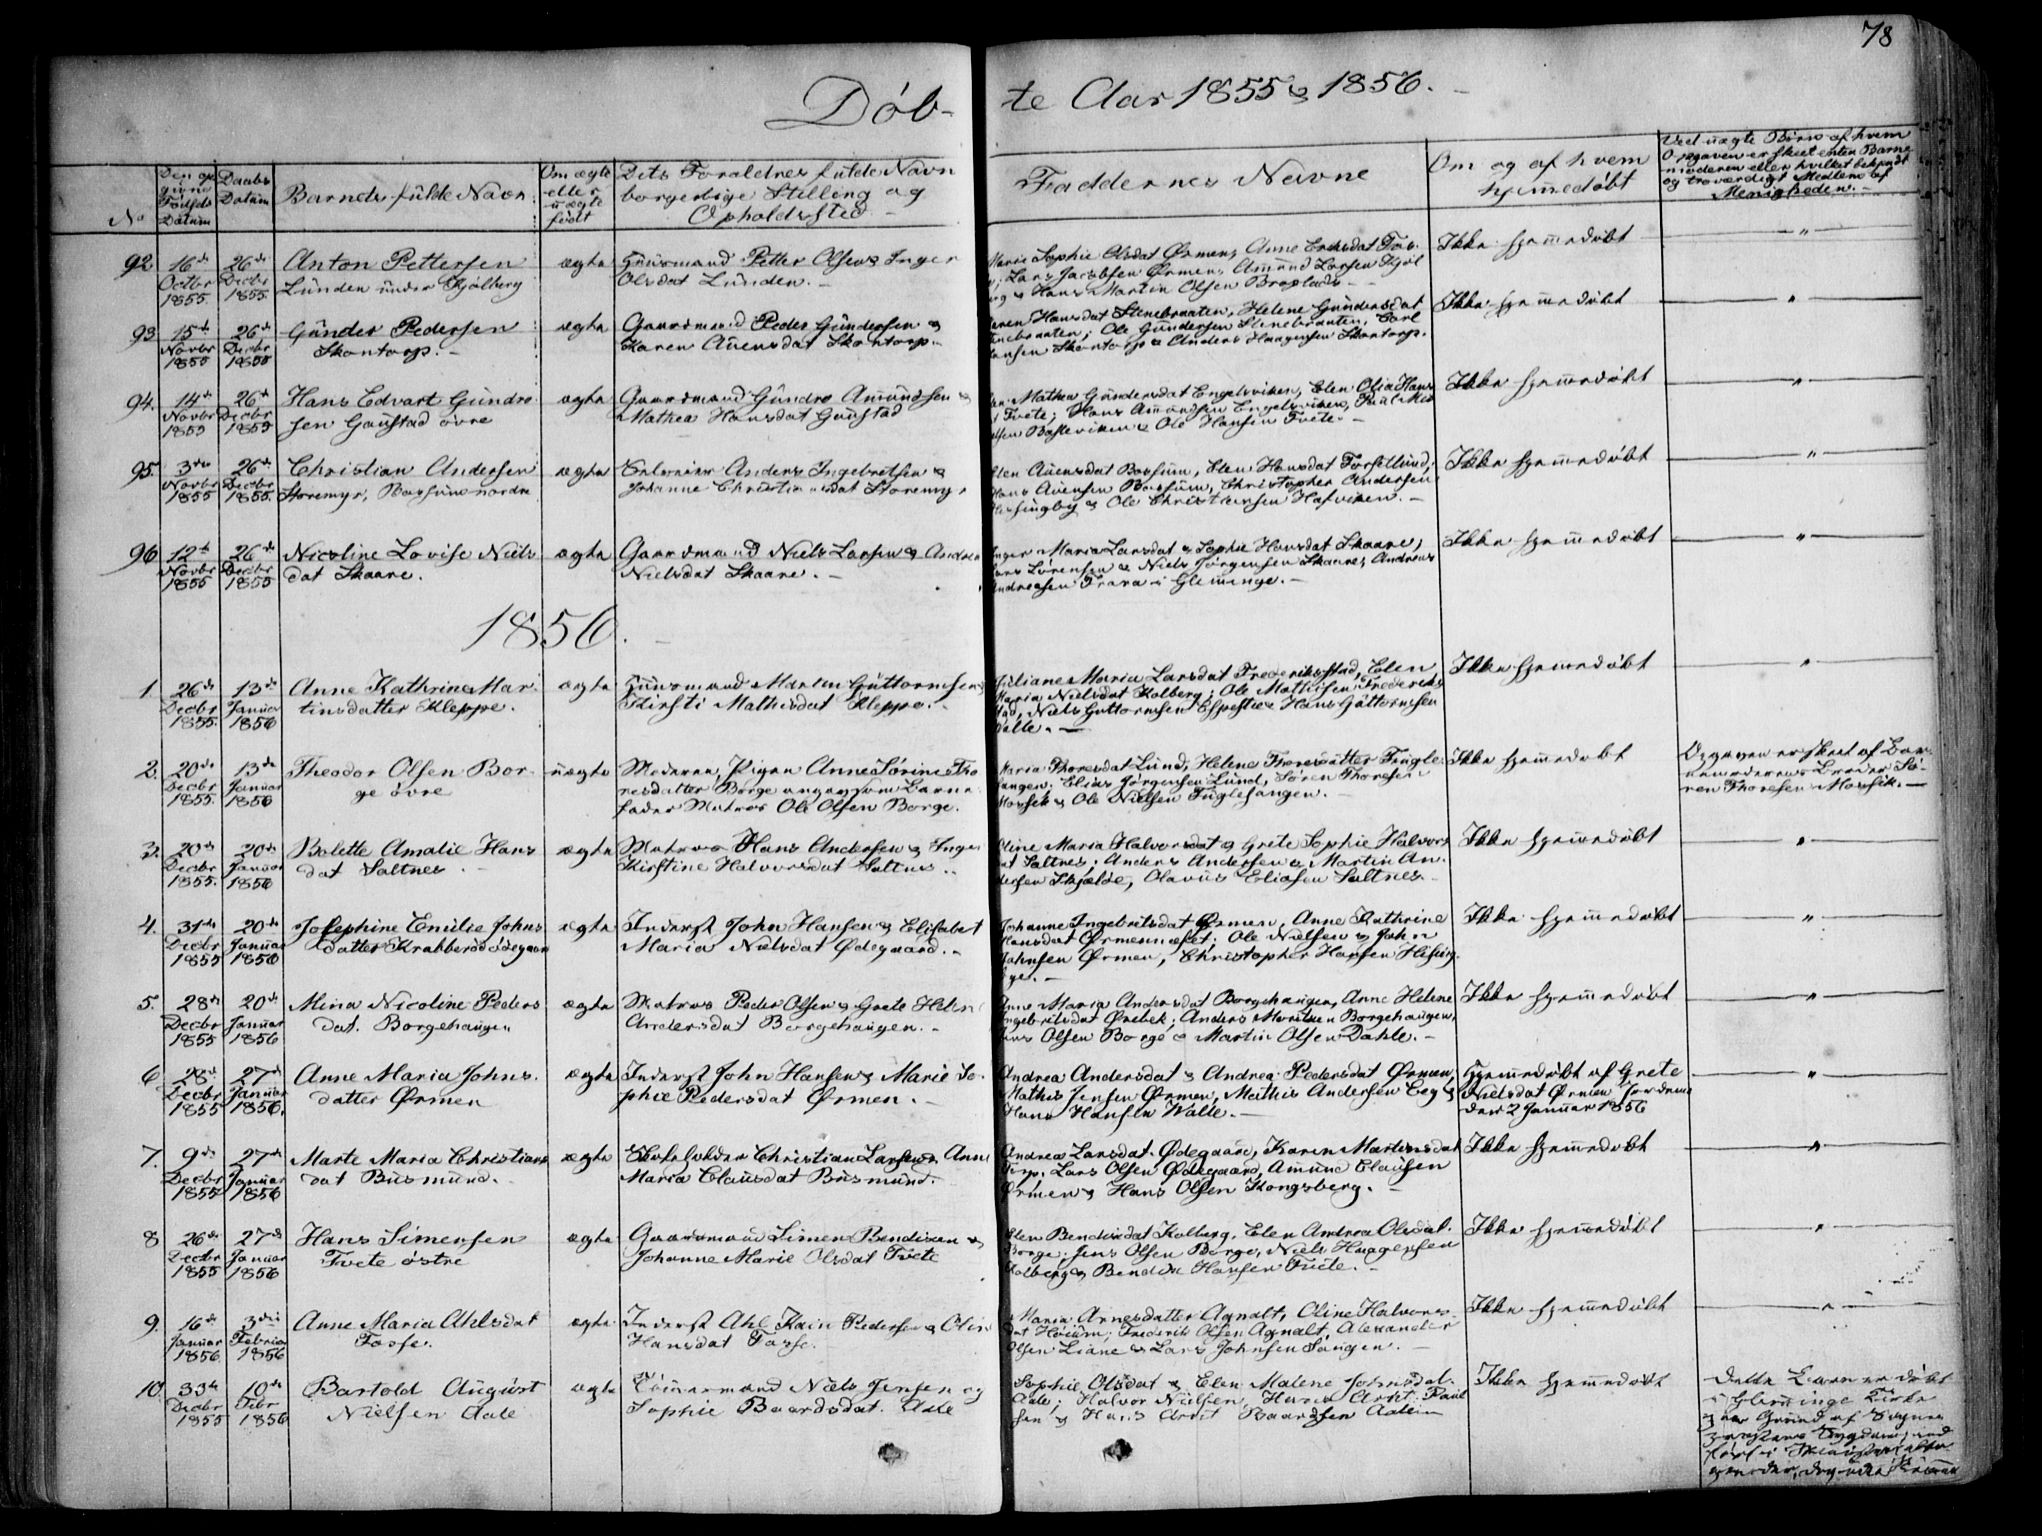 78
Döb- te Aar 1855 & 1856.
No
Den op
givne
Fødsels
Datum
Daabs
Datum
Barnets fulde Navn
Om ægte
eller
uægte
født
Dets Foraldres fulde Navn
borgerlige Stilling og
Opholdssted
Faddernes Navne
Om og af hvem
hjemedøbt
Ved uægte Børn af hvem
Opgaven er skeet enten Barne
moderen eller hvilket bekjendt
og troværdigt Medlem af
Menigheden.
92 16de Octbr 1855. 26de Decbr 1855
Anton Pettersen
Lunden under Kjølberg
ægte
Huusmand Petter Olsen & Inger
Olsdat Lunden.
Marie Sophie Olsdat Ørmen, Anne
Lars Jacobsen Ørmen, Amund Larsen Kjøl
& Hans Martin Olsen
Ikke hjemedøbt
93 15de Novbr 1855 26de Decbr 1855
Gunder Pedersen
Skontorp.
ægte
Gaardmand Peder Gundersen &
Karen Auensdat Skontorp.
Hansdat Stenebraaten, Helene Gundersdat
Ole Gundersen Stenebraaten, Carl
Skontorp & Anders Haagensen Skontorp.
Ikke hjemedøbt
94. 14de Novbr 1855 26de Decbr 1855
Hans Edvart Gundro
sen Gaustad øvre
ægte
Gaardmand Gundro Amundsen &
Mathea Hansdat Gaustad
Mathea Gundersdat Engelsviken, Elen Olia Hans
Tvete; Hans Amundsen Engelsviken, Paul
Basteviken & Ole Hansen Tvete.
Ikke hjemedøbt
95. 3die Novbr 1855 26de Decbr 1855
Christian Andersen
Storemyr, Borsum nordre
ægte
Anders Ingebretsen &
Johanne Christiansdat Storemyr
Elen Auensdat Borsum, Elen Hansdat
Hans Auensen Borsum, Christopher Andersen
& Ole Christiansen Hafviken.
Ikke hjemedøbt
96 12te Novbr 1855 26de Decbr 1855
Nicoline Lovise Niels
dat Skaare.
ægte
Gaardmand Niels Larsen & Andrea
Nielsdat Skaare.
Inger Maria Larsdat & Sophie Hansdat Skaare,
Lars Sørensen & Niels Jørgensen Skaare, Andreas
Andreasen Trara i Glemminge.
Ikke hjemedøbt
1856.
1. 26de Decbr 1855. 13de Januar 1856
Anne Kathrine Mar
tinsdatter Kleppe.
ægte
Huusmand Martin Guttormsen &
Kirsti Mathisdat Kleppe.
Juliane Maria Larsdat Frederiksstad, Elen
Maria Nielsdat Kolberg; Ole Mathisen Frederiks
stad, Niels Guttormsen & Hans Guttormsen
Walle.
Ikke hjemedøbt
2. 20de Decbr 1855. 13de Januar 1856
Theodor Olsen Bor-
ge øvre
uægte
Moderen, Pigen Anne Sørine Tho
resdatter Borge angav som Barne
fader Matros Ole Olsen Borge.
Maria Thoresdat Lund, Helene Thoresdatter Fugle
sangen; Elias Jørgensen Lund, Søren Thoresen
& Ole Nielsen Fuglesangen.
Ikke hjemedøbt
Opgaven er skeet af Bar-
nemoderens Broder Sø-
ren Thoresen
3. 20de Decbr 1855. 20de Januar 1856
Bolette Amalie Hans
dat Saltnes
ægte
Matros Hans Andersen & Inger
Kirstine Halvorsdat Saltnes.
Oline Maria Halvorsdat & Grete Sophie Halvors
dat Saltnes; Anders Andersen & Martin An
dersen Skjælde, Olavus Eliasen Saltnes.
Ikke hjemedøbt
4. 31de Decbr 1855 20de Januar 1856
Josephine Emilie Johns
datter Krabberødødegaard
ægte
Inderst John Hansen & Elisabet
Maria Nielsdat Ødegaard.
Johanne Ingebretsdat Ørmen, Anne Kathrine
Hansdat Ørmennæset; Ole Nielsen & John
Johnsen Ørmen, Christopher Hansen
Ikke hjemedøbt
5. 28de Decbr 1855 20de Januar 1856
Mina Nicoline Peders
dat. Borgehaugen
ægte
Matros Peder Olsen & Grete Helene
Andersdat Borgehaugen.
Anne Maria Andersdat Borgehaugen, Anne Helene
Ingebretsdat Ørebek; Anders Borgehaugen,
Jens Olsen Borge & Martin Olsen Dahle.
Ikke hjemedøbt
6 28de Decbr 1855 27de Januar 1856.
Anne Maria Johns.
datter Ørmen
ægte
Inderst John Hansen & Marie So-
phie Pedersdat Ørmen.
Andrea Andersdat & Andrea Pedersdat Ørmen,
Mathis Jensen Ørmen, Mathis Andersen Eeg &
Hans Hansen Walle.
Hjemedøbt af Grete
Nielsdat Ørmen
den 2 Januar 1856
7. 9de Decbr 1855 27de Januar 1856
Marte Maria Christians
dat Busmund.
ægte
Christian Larsen & Anne
Maria Clausdat Busmund.
Andrea Larsdat Ødegaard, Karen Martinsdat
Torp, Lars Olsen Ødegaard, Amund Clausen
Ørmen & Hans Olsen Kongsberg.
Ikke hjemedøbt
8 26de Decbr 1855 27de Januar 1856
Hans Simensen
Tvete østre
ægte
Gaardmand Simen Bendixen &
Johanne Marie Olsdat Tvete
Elen Bendixdat Kolberg, Elen Andrea Olsdat
Borge; Jens Olsen Borge, Niels Haagensen
Kolberg & Bendix Hansen Tvete.
Ikke hjemedøbt
9. 16de Januar 1856. 3die Februar 1856
Anne Maria Ahlsdat
Fosse.
ægte
Inderst Ahl Kain Pedersen & Oline
Hansdat Fosse.
Maria Arnesdatter Agnalt, Oline Halvors
dat Høium; Frederik Olsen Agnalt, Alexander
Olsen Liane & Lars Johnsen Haugen.
Ikke hjemedøbt
10. Decbr 1855 10de Febr 1856
Bartold August
Nielsen Aale
ægte
Tømermand Niels Jensen og
Sophie Baardsdat. Aale
Sophie Olsdat & Elen Malene Johnsdat.
Aale; Halvor Nielsen, Hans Paul
sen & Hans Baardsen Aale
Ikke hjemedøbt
Dette Barn er døbt
i Glemminge Kirke